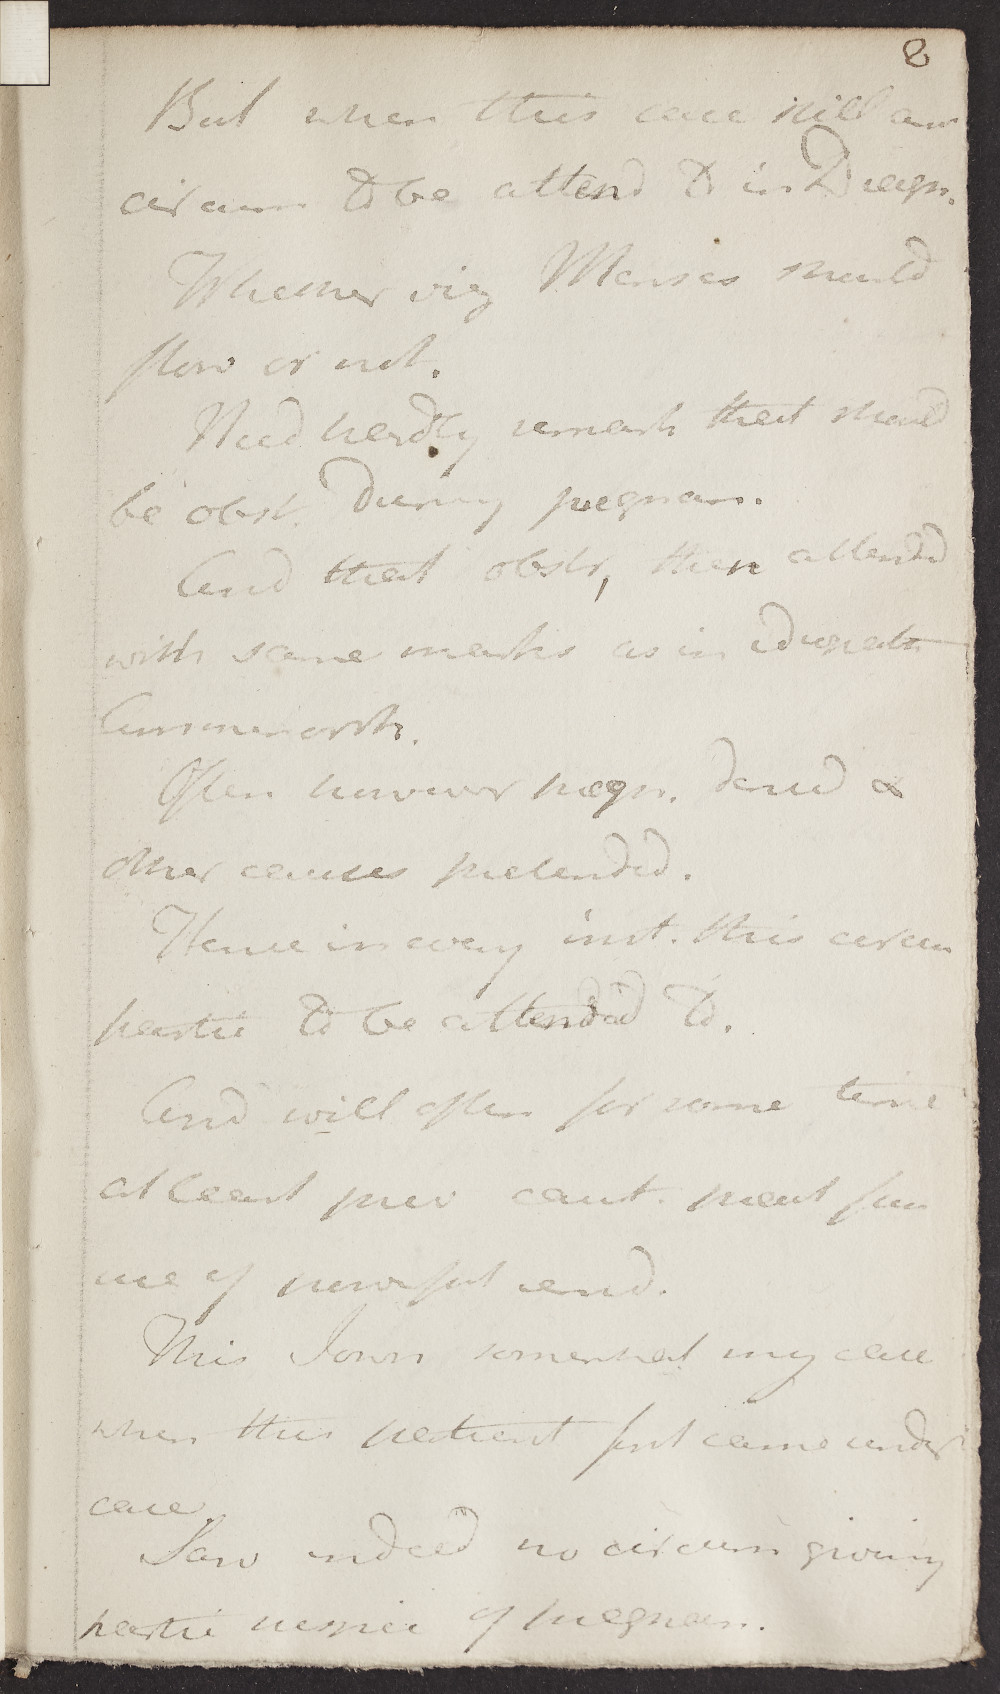 8
But when this case still an
circum to be attend to in D regn.
Whether vig Menses should
flow or not.
Need hardly remark that should
be obst. During pregnan.
And that obstr, then attended
with same marks as in idiopath
Amenorrh.
Often however pregn. denied &
other causes pretended.
Hence in every inst. this circum
partic to be attended to.
And will often for some time
at least prev caut. pract from
use of powerful
This I own somewhat my case
when this patient first came under
care.
Saw indeed no circum giving
partic suspic of pregnan.